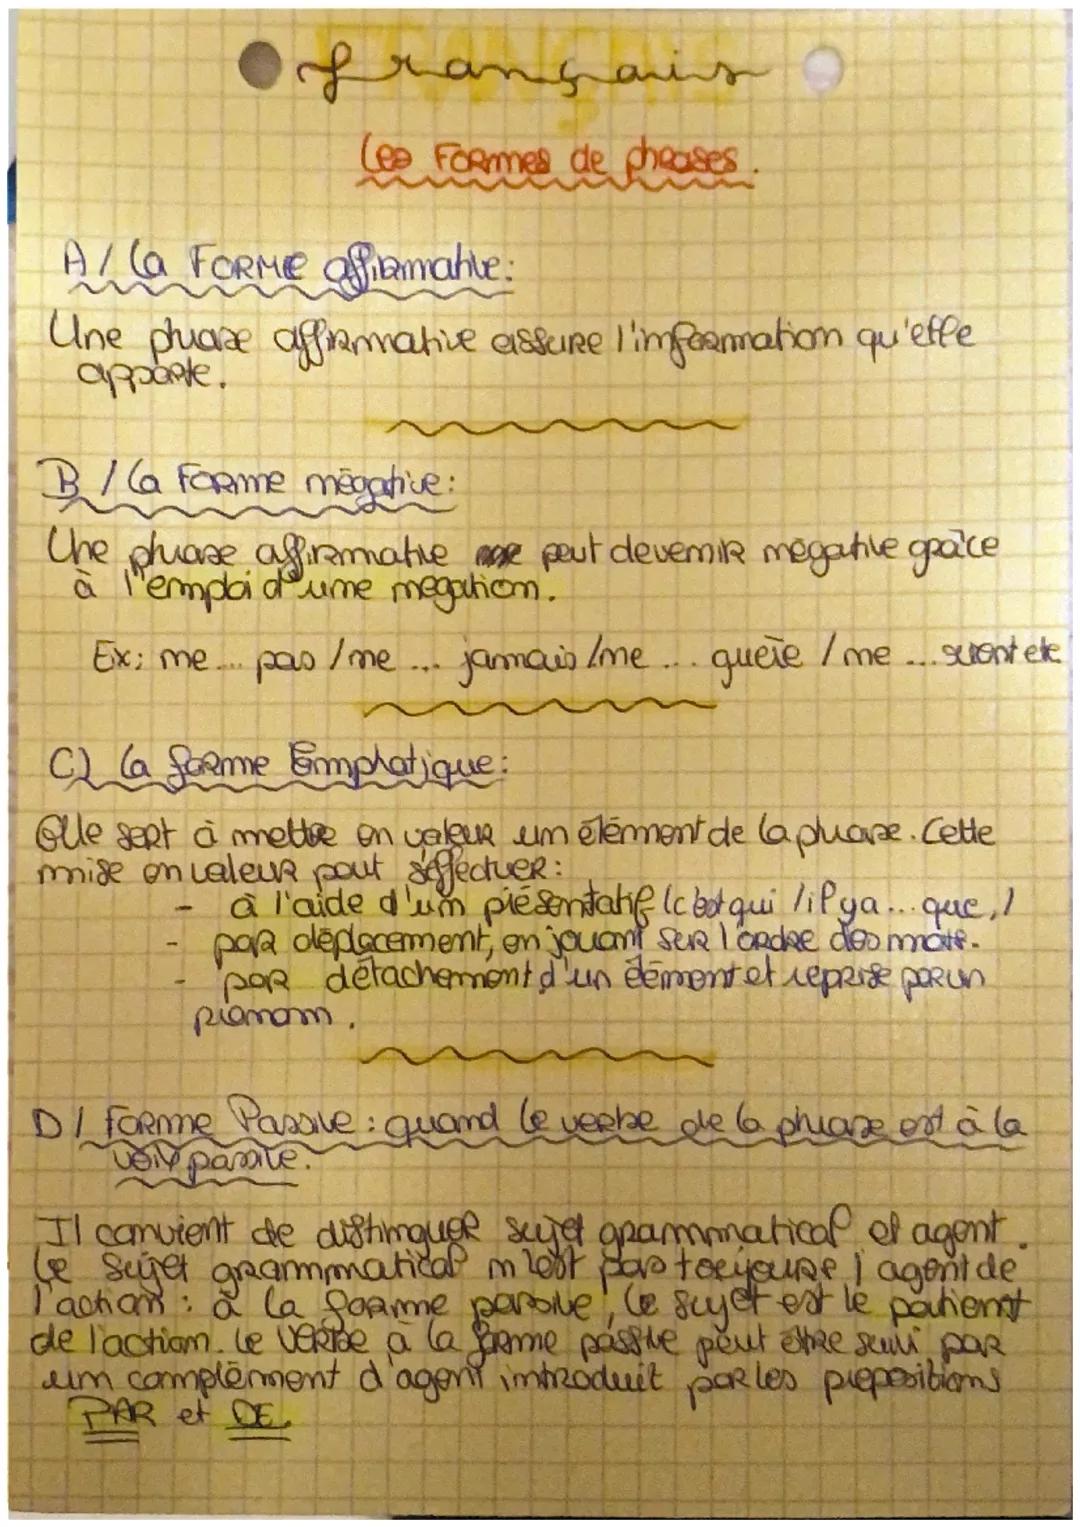 français
Les Formes de phrases.
A/ La FORME affirmative:
Une phrase affirmative assure l'information qu'elle
apporte.
B/ La Forme négative:
Une phrase affirmative peut devenir négative grâce
à l'emploi d'une négation.
Ex: ne... pas / ne ... jamais / ne ... guère / ne ...
C) La forme Emphatique:
Elle sert à mettre en valeur un élément de la phrase. Cette
mise en valeur peut s'effectuer:
- à l'aide d'un présentatif (c'est qui / il y a ... que, )
- par déplacement, en jouant sur l'ordre des mots.
- par détachement d'un élément et reprise par un
pronom.
D/ Forme Passive: quand le verbe de la phrase est à la
voix passive.
Il convient de distinguer sujet grammatical et agent.
Le sujet grammatical n'est pas toujours l'agent de
l'action: à la forme passive, le sujet est le patient
de l'action. Le VERBE à la forme passive peut être suivi par
un complément d'agent introduit par les prepositions
PAR et DE.